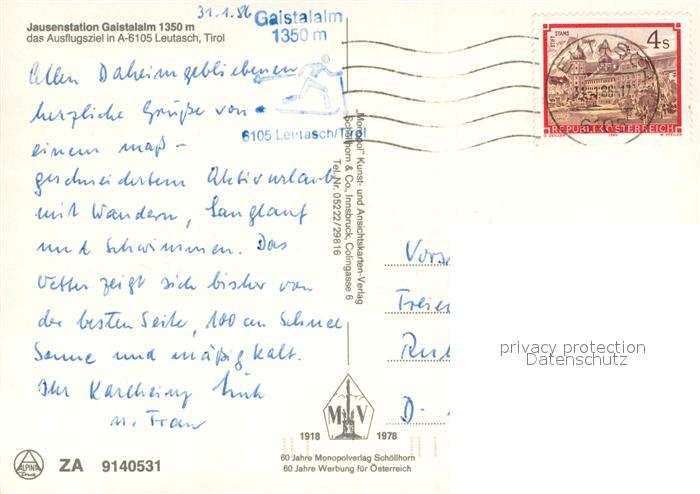 Jausenstation Gaistalalm 1350 m
das Ausflugsziel in A-6105 Leutasch, Tirol
31.1.86
Gaistalalm
1350 m
6105 Leutasch/Tirol
STIFT STAMS
4 S
REPUBLIK ÖSTERREICH
LEUTASCH
Allen Daheimgebliebenen
herzliche Grüße von
einem maß-
geschneidertem Aktivurlaub
mit Wandern, Langlauf
und Schwimmen. Das
Wetter zeigt sich bisher von
der besten Seite, 100 cm Schnee
Sonne und mäßig kalt.
Ihr Karlheinz
u. Frau
„Monopol" Kunst- und Ansichtskarten-Verlag
Schöllhorn & Co., Innsbruck, Colingasse 6
Tel. Nr. 05222/29816
Freie
D-
privacy protection
Datenschutz
M V
1918 1978
60 Jahre Monopolverlag Schöllhorn
60 Jahre Werbung für Österreich
ALPINA
ZA 9140531